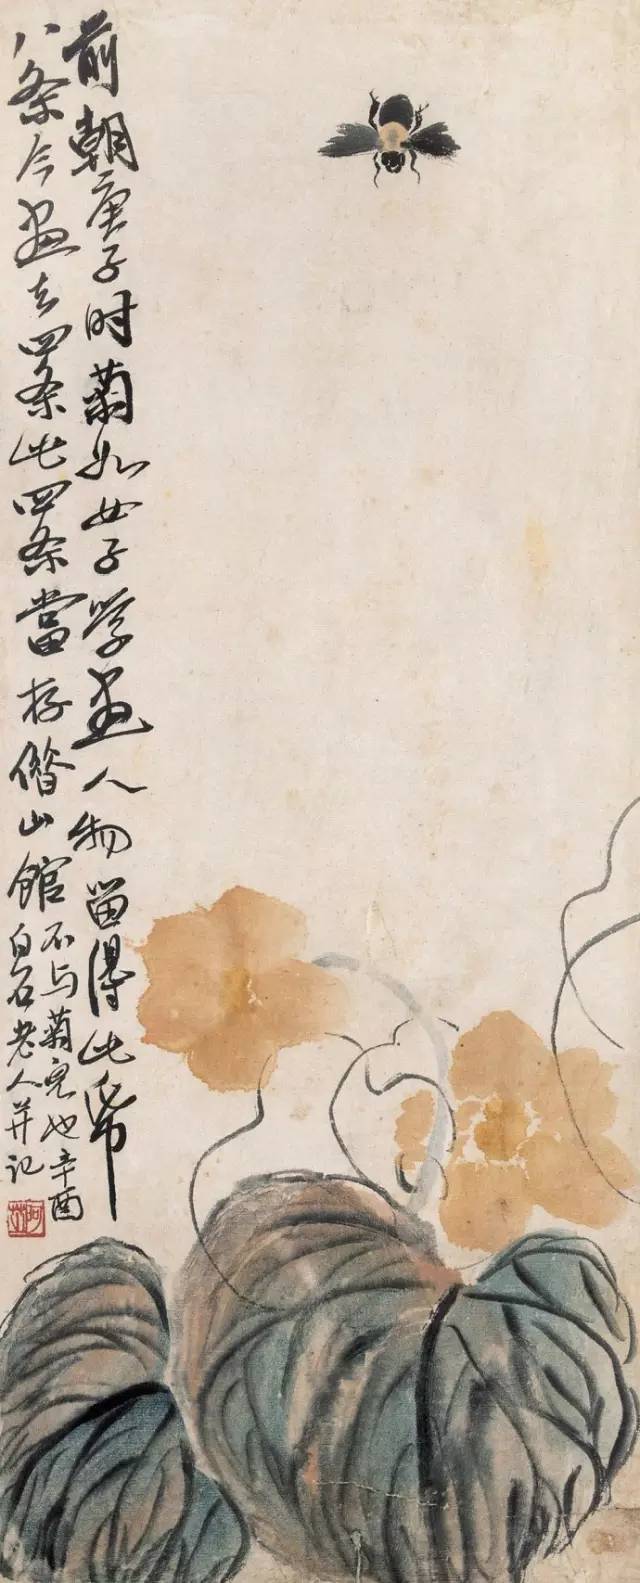 前朝庚子时菊如女子学画人物留得此帋
八条今画去四条此四条當存借山館
不与菊兒也辛酉
白石老人并记
阿芝